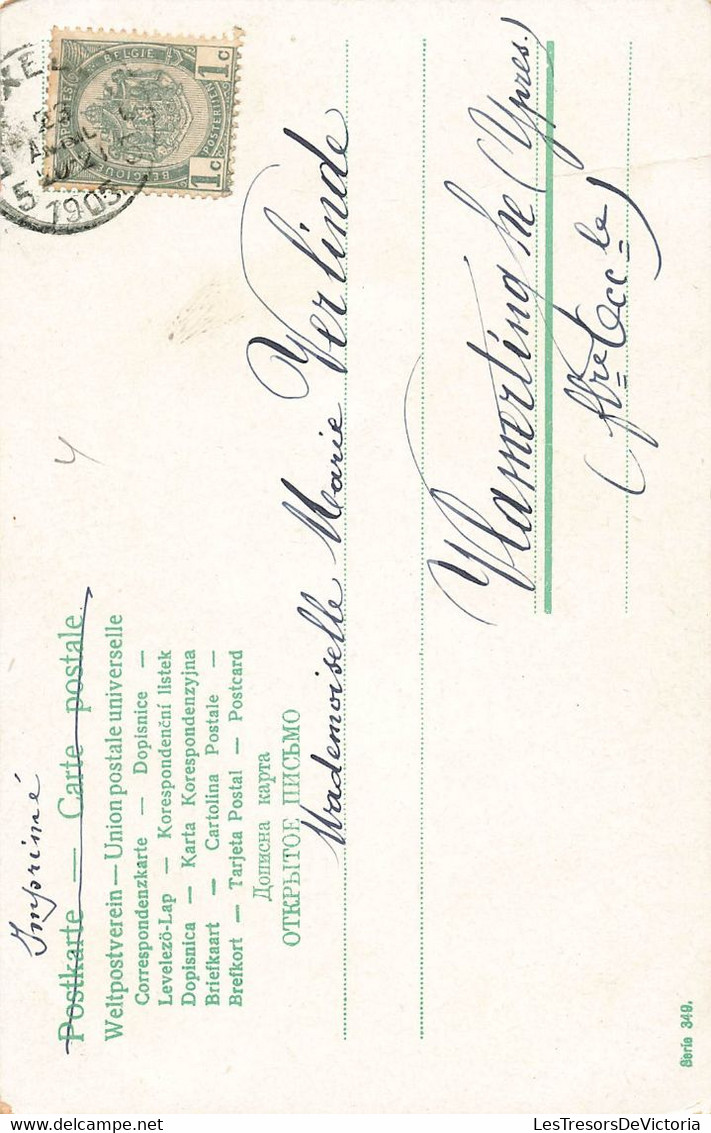 Imprimé
Postkarte — Carte postale
Weltpostverein — Union postale universelle
Correspondenzkarte — Dopisnice —
Levelező-Lap — Korespondenční listek
Dopisnica — Karta Korespondenzyjna
Briefkaart — Cartolina Postale —
Brefkort — Tarjeta Postal — Postcard
Дописна карта
ОТКРЫТОЕ ПИСЬМО
Mademoiselle Marie Verlinde
Vlamertinghe (Ypres.)
1c BELGIE 1c
1c BELGIQUE 1c
POSTERIJEN
1905
Serie 349.
LesTresorsDeVictoria-delcampe.net